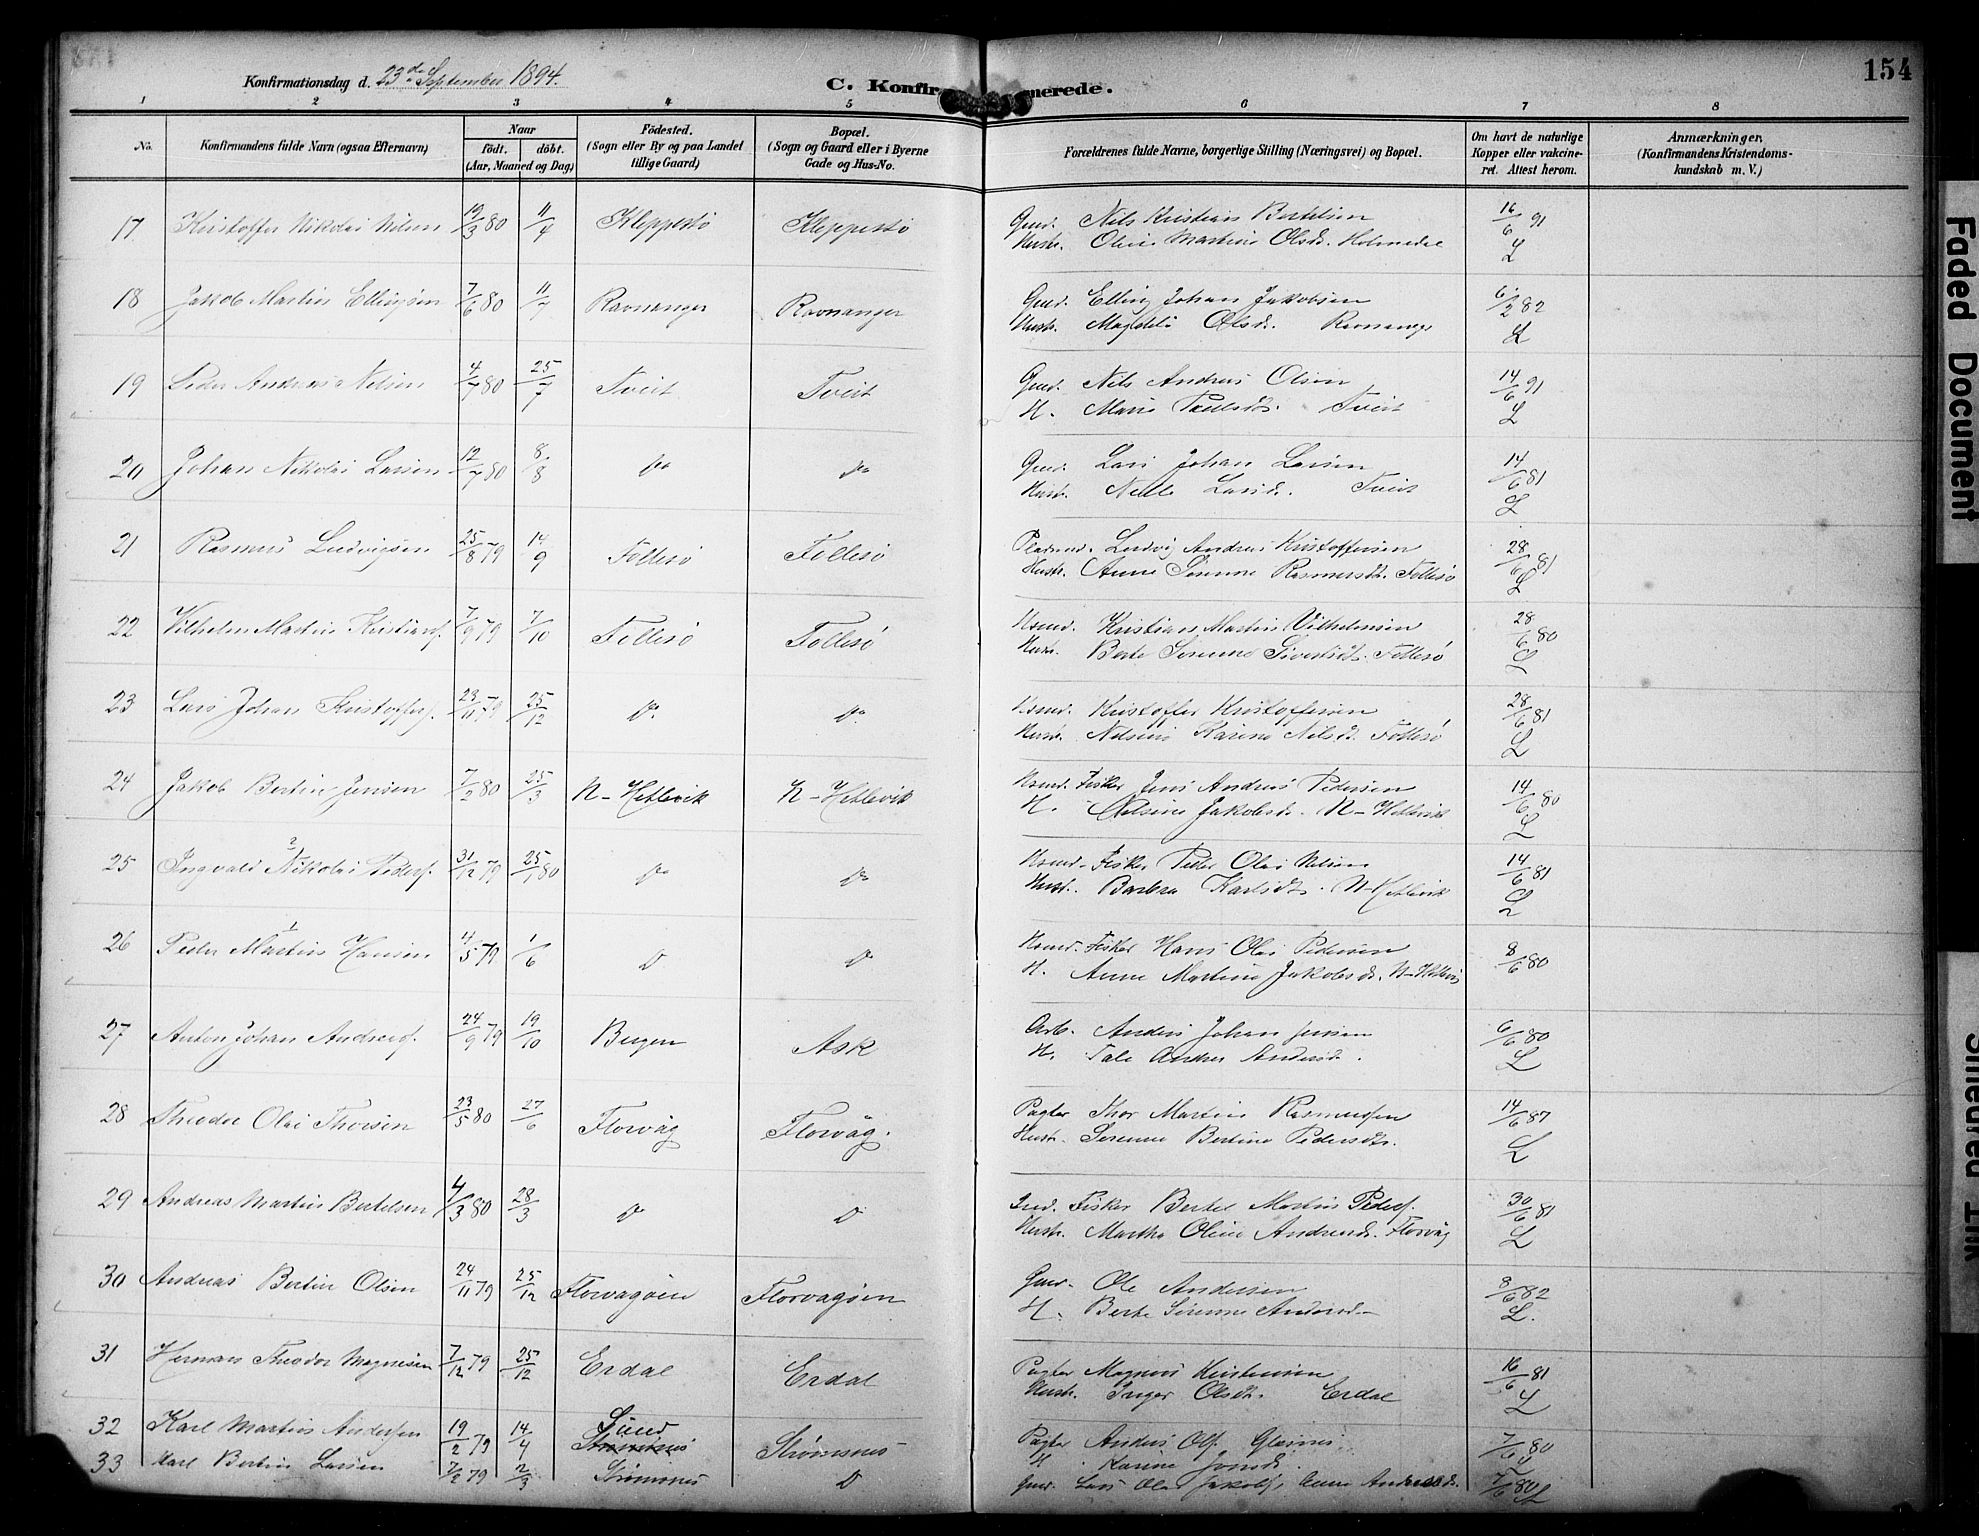 154
Konfirmationsdag d. 23de September 1894.
C. Konfir merede.
1 2 3 4 5 6 7 8
No.
Konfirmandens fulde Navn (ogsaa Efternavn)
Naar
födt. döbt.
(Aar, Maaned og Dag)
Födested.
(Sogn eller By og paa Landet
tillige Gaard)
Bopæl.
(Sogn og Gaard eller i Byerne
Gade og Hus-No.
Forældrenes fulde Navne, borgerlige Stilling (Næringsvei) og Bopæl.
Om havt de naturlige
Kopper eller vakcine-
ret. Attest herom.
Anmærkninger,
(Konfirmandens Kristendoms-
kundskab m. V.)
17 Kristoffer Nikolai Nilsen 19/3 80 11/4 Kleppestö Kleppestö Gmd. Nils Kristians Bertelsen 16/6 91
Hustr. Oline Martine Olsdr. L
18 Jakob Martin Ellingsen 7/6 80 11/7 Ravnanger Ravnanger Gmd. Elling Johan Jakobsen 6/2 82
Hustr. Magdeli Olsdr. Ravnanger L
19 Peder Andreas Nilsen 4/7 80 25/7 Tveit Tveit Gmd. Nils Andreas Olsen 14/6 91
H. Marie Paulsdtr. Tveit L
20 Johan Nikolai Larsen 12/7 80 8/8 Do Do Gmd. Lars Johan Larsen 14/6 81
Hustr. Nille Larsdr. Tveit L
21 Rasmus Ludvigsen 25/8 79 14/9 Follesö Follesö Pladsmd. Ludvig Andreas Kristoffersen 28/6 81
Hustr. Anne Serenne Rasmusdtr. Follesö L
22 Vilhelm Martin Kristians. 7/9 79 7/10 Follesö Follesö Kristian Martin Vilhelmsen 28/6 80
Berte Serenne Sivertsdtr. Follesö L
23 Lars Johan Kristoffers. 23/11 79 25/12 Do Do Kristoffer Kristoffersen 28/6 81
Nelsine Karine Nilsdr. Follesö L
24 Jakob Bertin Jensen 7/2 80 25/3 N-Hetlevik N-Hetlevik Fisker Jens Andreas Pedersen 14/6 80
H. Nelsine Jakobsdr. N-Hetlevik L
25 Ingvald Nikolai Peders. 31/12 79 25/1 80 Do Do Fisker Peder Olai Nilsen 14/6 81
Hust. Barbra Karlsdtr. N-Hetlevik L
26 Peder Martin Hansen 4/5 79 1/6 D Do Fisker Hans Olai Pedersen 8/6 80
H. Anne Martine Jakobsdr. N-Hetlevik
27 Anton Johan Anders. 24/9 79 19/10 Bergen Ask Arb. Anders Johan Jensen 6/6 80
H. Tale Andrea Andersdr. L
28 Theodor Olai Thorsen 23/5 80 27/6 Florvåg Florvåg. Pagter Thor Martin Rasmussen 14/6 87
Hustr. Serenne Bertine Pedersdtr. L
29 Andreas Martin Bertelsen 4/3 80 28/3 D D Fisker Bertel Martin Peders. 30/6 81
Hustr. Martha Oline Andreasdr. Florvåg L
30 Andreas Bertin Olsen 24/11 79 25/12 Florvagöen Florvagöen Gmd. Ole Andersen 8/6 82
H. Berte Serenne Andersdr. L.
31 Herman Theodor Magnesen 7/12 79 25/12 Erdal Erdal Pagter Magnus Kristensen 16/6 81
Hustr. Inger Olsdtr. Erdal L
32 Karl Martin Andersen 19/2 79 14/4 Sund Strømsnes Strømsnes Pagter Anders Ols. 7/6 80
H. Karine Jonsdr. L
33 Karl Bertin Larsen 7/2 79 2/3 Strømsnes D Gmd. Lars Olai Jakobs., Anne Andreasdr. 7/6 80 L
Faded Document
Smeared Ink